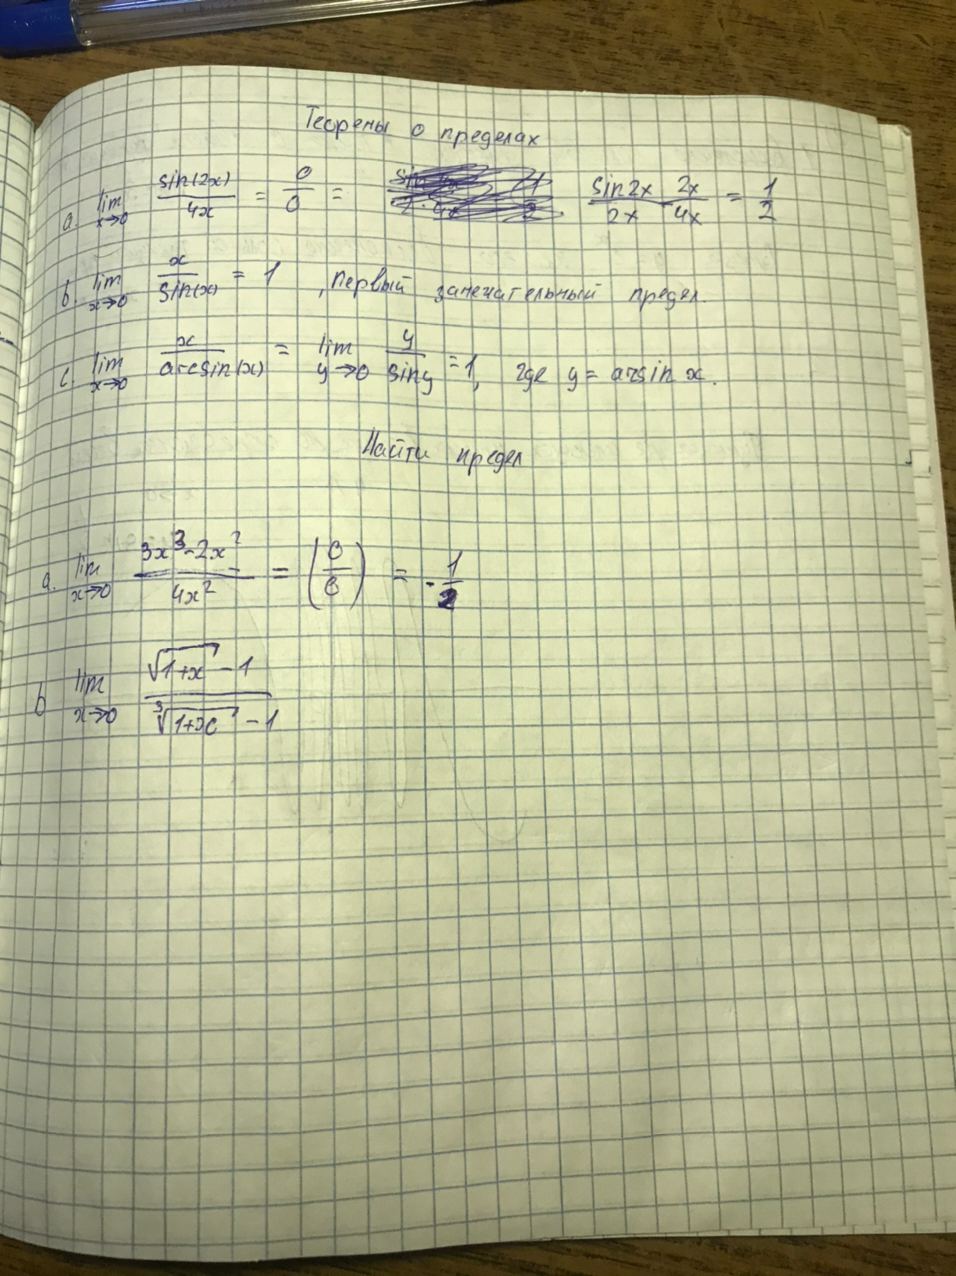 Теоремы о пределах
a. lim x→0 sin(2x)/4x = 0/0 = sin2x/2x 2x/4x = 1/2
b. lim x→0 x/sin(x) = 1 , первый замечательный предел.
c. lim x→0 x/arcsin(x) = lim y→0 y/siny = 1, где y = arsin x.
Найти предел
a. lim x→0 3x³-2x²/4x² = (0/0) = -1/2
b lim x→0 √1+x - 1/∛1+x - 1